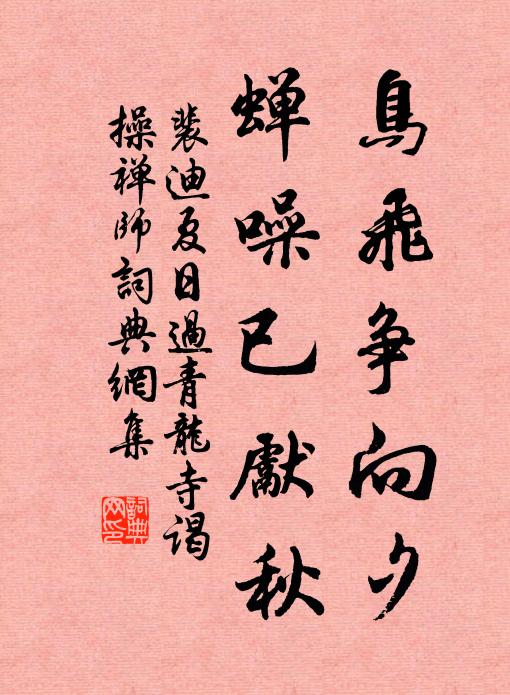 鳥飛争向夕
蝉噪已獻秋
裴迪夏日過青龍寺谒
操禅師詞典網集
詞典
网印